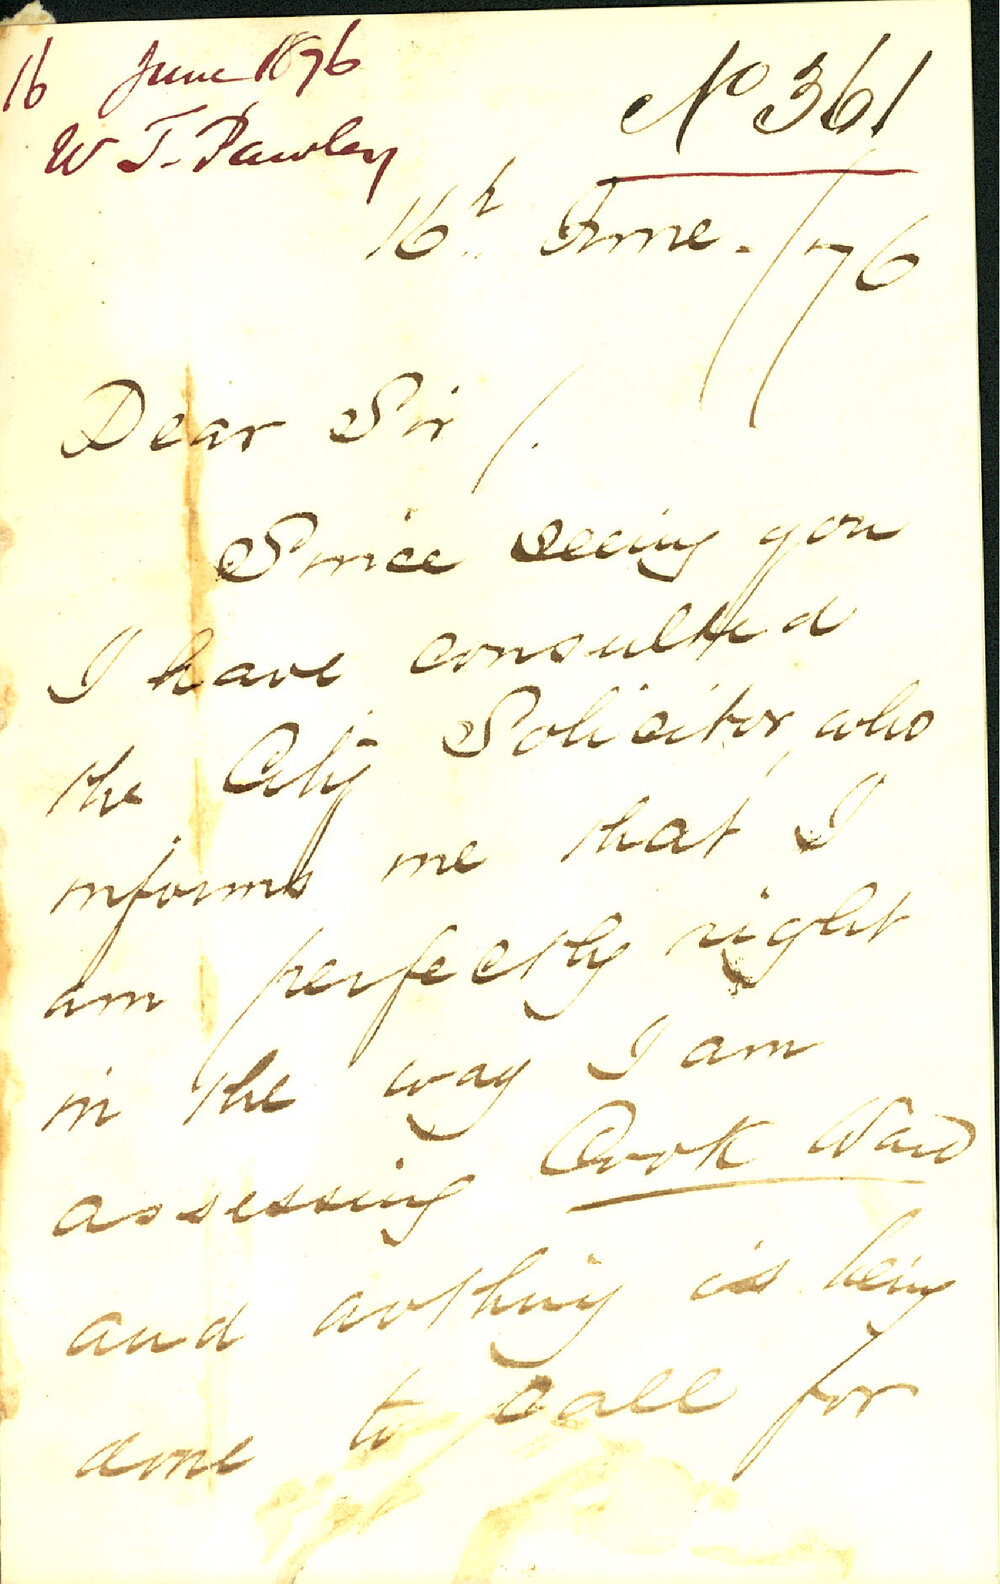 16 June 1876
W T. Pawley
No 361
16h June. /76
Dear Sir /.
Since seeing you
I have consulted
the City Solicitor, who
informs me that I
am perfectly right
in the way I am
assessing Cook Ward
and nothing is being
done to call for